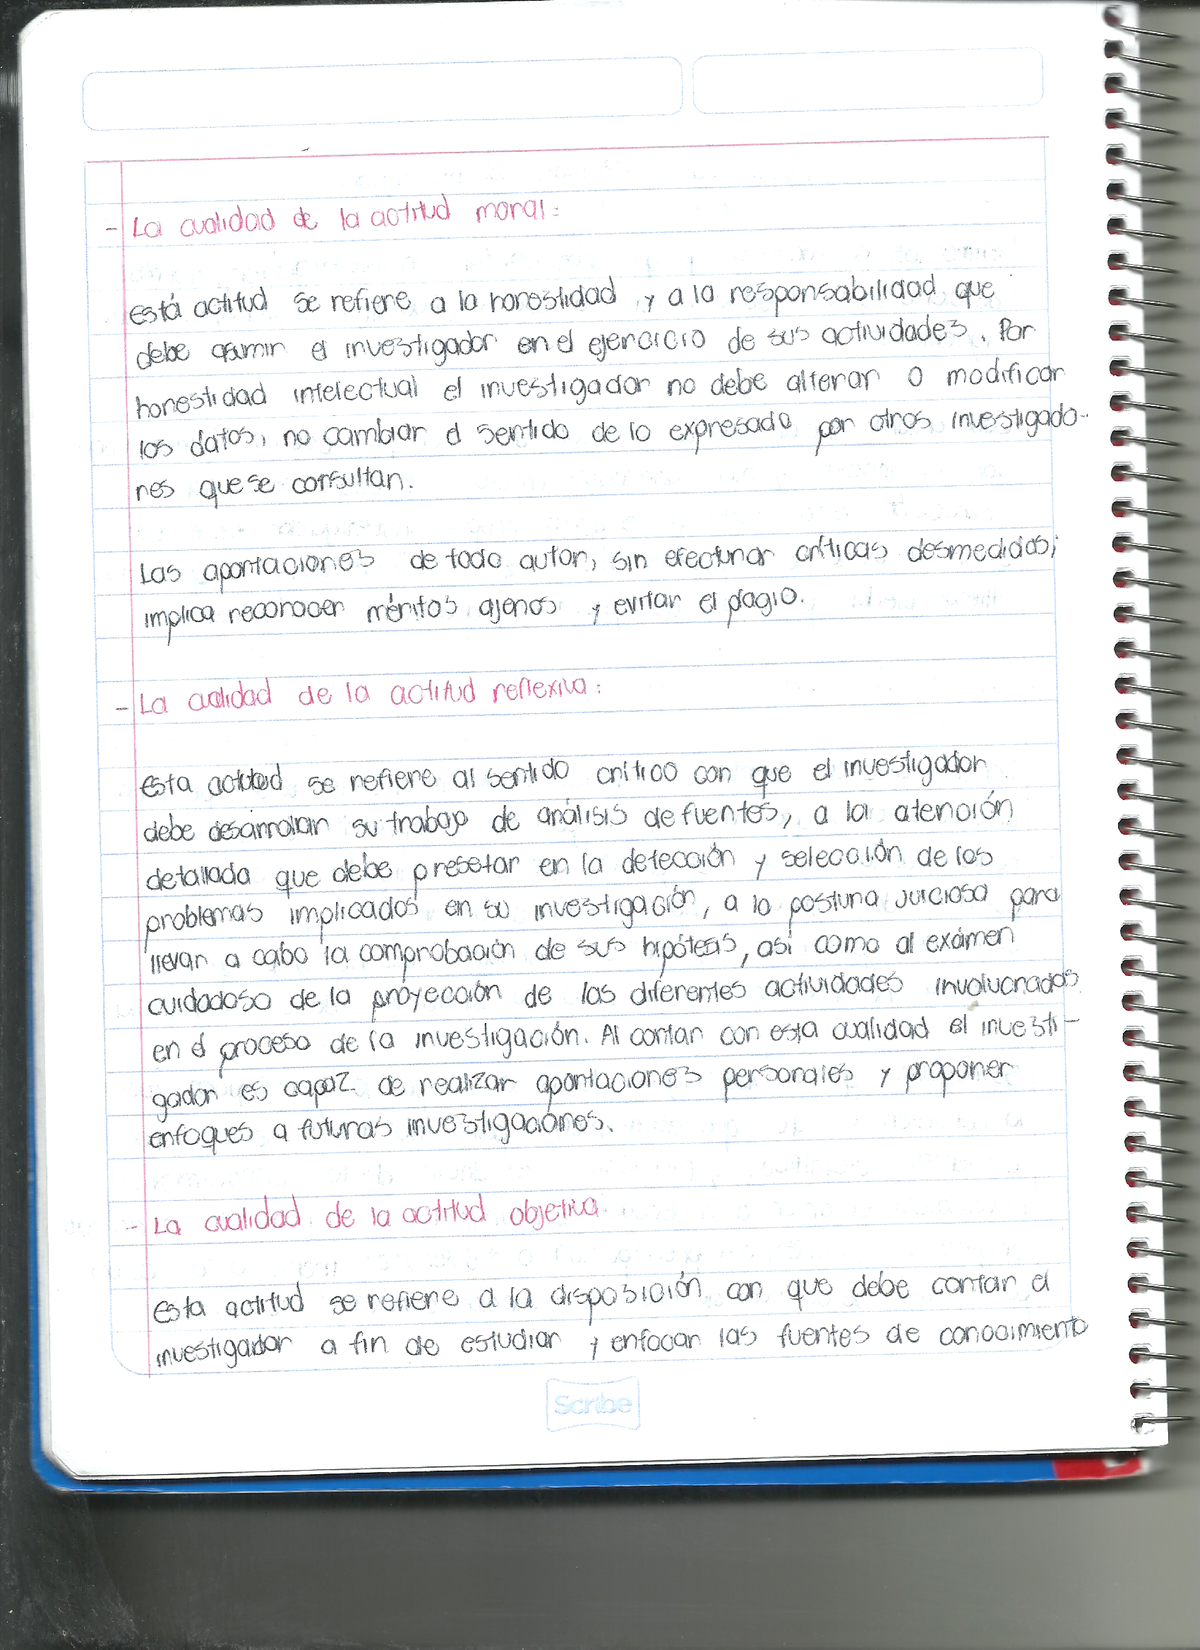 - La cualidad de la actitud moral:
está actitud se refiere a la honestidad y a la responsabilidad que
debe asumir el investigador en el ejercicio de sus actividades. Por
honestidad intelectual el investigador no debe alterar o modificar
los datos, no cambiar el sentido de lo expresado por otros investigado-
res que se consultan.
Las aportaciones de todo autor, sin efectuar críticas desmedidas;
implica reconocer méritos ajenos y evitar el plagio.
- La cualidad de la actitud reflexiva:
Esta actitud se refiere al sentido crítico con que el investigador
debe desarrollar su trabajo de análisis de fuentes, a la atención
detallada que debe presetar en la detección y selección de los
problemas implicados en su investigación, a la postura juiciosa para
llevar a cabo la comprobación de sus hipótesis, así como al exámen
cuidadoso de la proyección de las diferentes actividades involucradas
en el proceso de la investigación. Al contar con esta cualidad el investi-
gador es capaz de realizar aportaciones personales y proponer
enfoques a futuras investigaciónes.
- La cualidad de la actitud objetiva
Esta actitud se refiere a la disposición con que debe contar el
investigador a fin de estudiar y enfocar las fuentes de conocimiento
Scribe